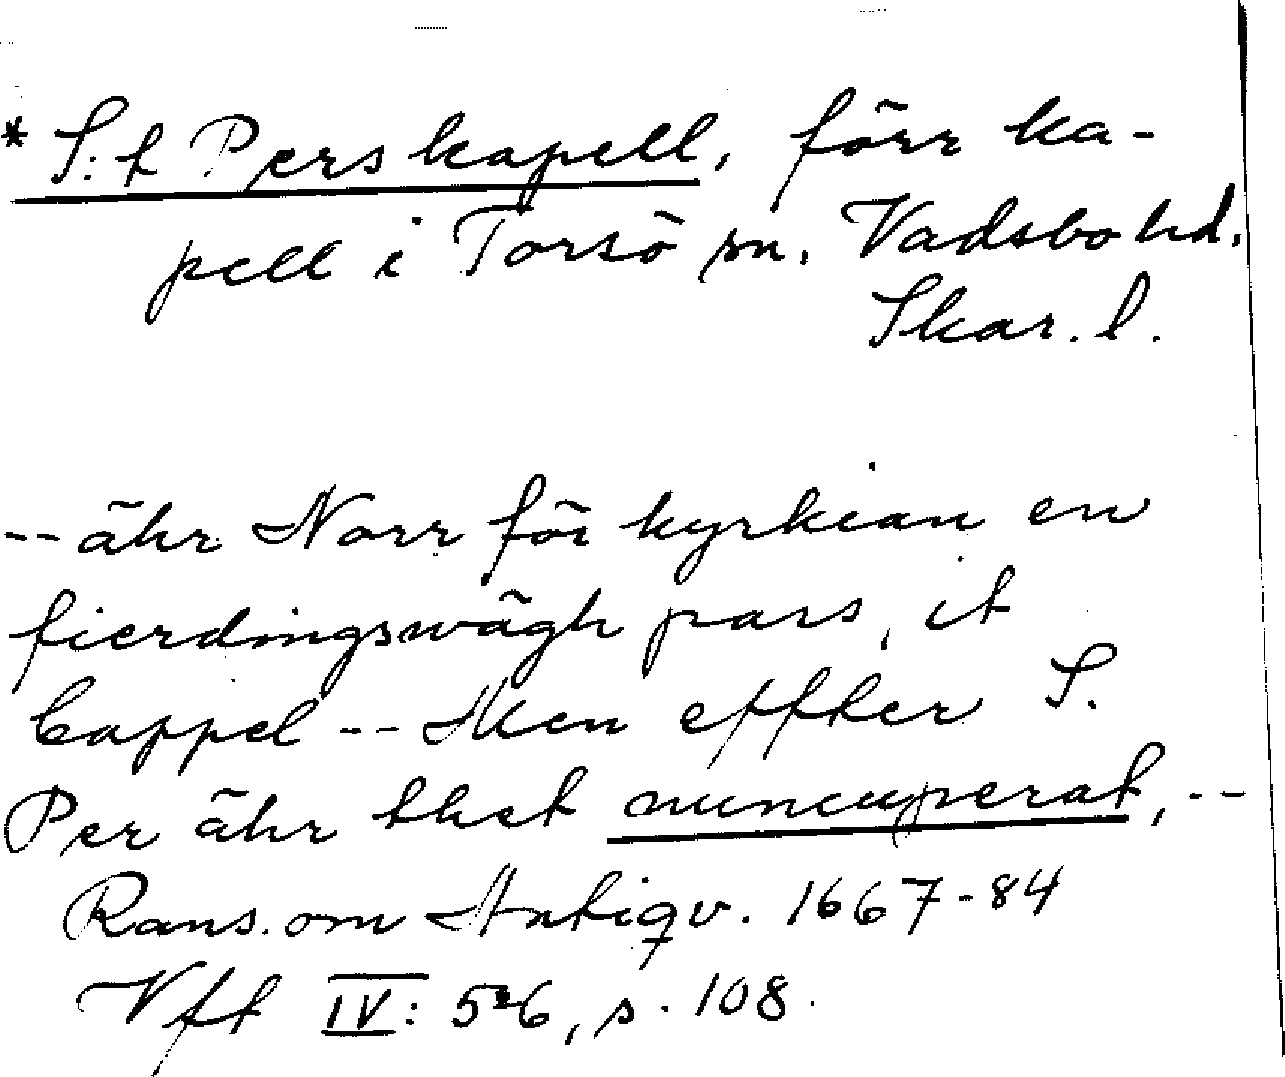 * S:t Pers kapell, förr ka-
pell i Torsö sn. Vadsbo hd.
Skar. l.
-- ähr Norr för kyrkian en
fierdingswägh pass, it
Cappel -- Men effter S.
Per ähr thet nuncuperat, --
Rans. om Antiqv. 1667-84
Vft IV: 5-6, s. 108.